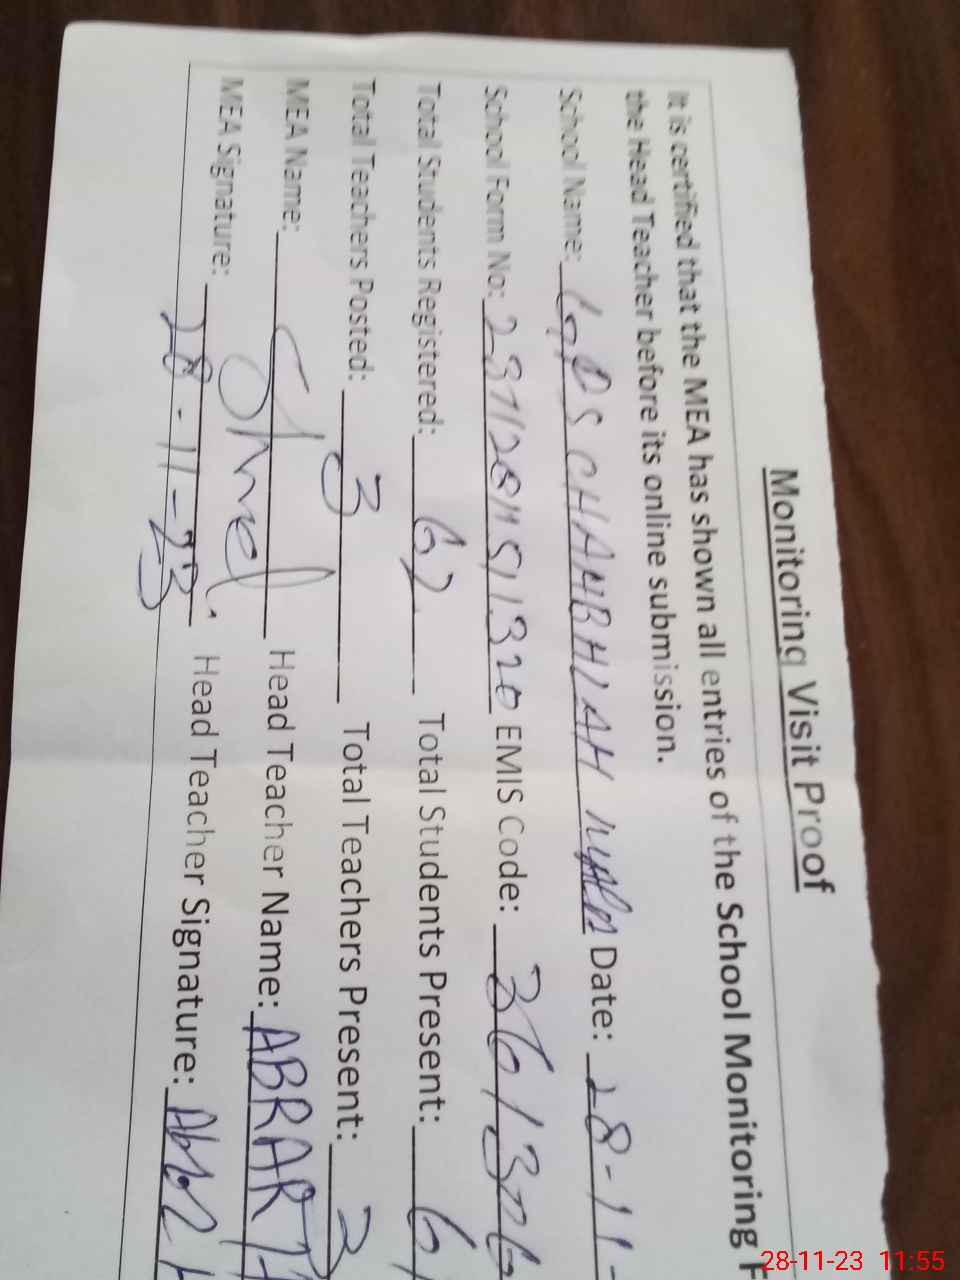 Monitoring Visit Proof
It is certified that the MEA has shown all entries of the School Monitoring F
the Head Teacher before its online submission.
School Name: GPS CHAHBHIAH Date: 28-11-
School Form No: EMIS Code:
Total Students Registered: 62 Total Students Present: 6
Total Teachers Posted: 3 Total Teachers Present: 3
MEA Name: Head Teacher Name: ABRAR
MEA Signature: Head Teacher Signature:
28-11-23
28-11-23 11:55